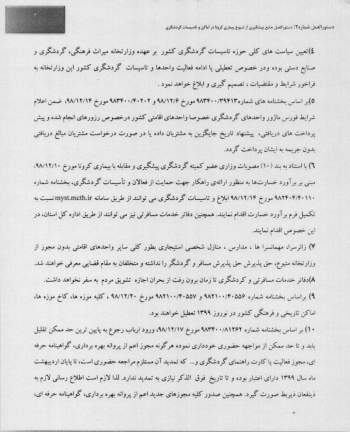 دستورالعمل شماره ۱۲: دستورالعمل منع پیشگیری از شیوع بیماری کرونا در اماکن و تاسیسات گردشگری
۴) تعیین سیاست های کلی حوزه تاسیسات گردشگری کشور بر عهده وزارتخانه میراث فرهنگی، گردشگری و
صنایع دستی بوده ودر خصوص تعطیلی یا ادامه فعالیت واحدها و تاسیسات گردشگری کشور این وزارتخانه به
فراخور شرایط و مقتضیات ، تصمیم گیری و ابلاغ خواهد نمود .
۵) بر اساس بخشنامه های شماره ۹۸۳۴۰۰.۳۹۴۱۳ مورخ ۹۸/۱۲/۶ و ۹۸۳۴۰۰/۴۰۲۰۲ مورخ ۹۸/۱۲/۱۴، ضمن اعلام
شرایط فورس ماژور واحدهای گردشگری خصوصا واحدهای اقامتی کشور درخصوص رزورهای انجام شده و پیش
پرداخت های دریافتی، پیشنهاد تاریخ جایگزین به مشتریان داده یا در صورت درخواست مشتریان مبالغ دریافتی
بدون جریمه به ایشان پرداخت گردد.
۶) با استناد به بند (۱۰) مصوبات وزارای عضو کمیته گردشگری پیشگیری و مقابله با بیماری کرونا مورخ ۹۸/۱۲/۱۰،
مبنی بر برآورد خسارت‌ها به منظور ارائه‌ی راهکار جهت حمایت از فعالان و تأسیسات گردشگری، بخشنامه شماره
۹۸۲۴۰۴/۴۰۱۱۰ مورخ ۹۸/۱۲/۱۴ ابلاغ و تاسیسات گردشگری می توانند از طریق سامانه myst.mcth.ir نسبت به
تکمیل فرم برآورد خسارت اقدام نمایند. همچنین دفاتر خدمات مسافرتی نیز می توانند از طریق اداره کل استان، در
این خصوص اقدام نمایند.
۷) زائرسرا، مهمانسرا ها ، مدارس ، منازل شخصی استیجاری بطور کلی سایر واحدهای اقامتی بدون مجوز از
وزارتخانه متبوع، حق پذیرش حق پذیرش مسافر و گردشگر را نداشته و متخلفان به مقام قضایی معرفی خواهند شد.
۸) دفاتر خدمات مسافرتی و گردشگری تا زمان برون رفت از بحران اجازه تشویق مردم به سفر نخواهند داشت.
۹) براساس بخشنامه شماره ۹۸۲۱۰۰/۴۰۵۵۶ و ۹۸۲۱۰۰/۴۰۵۵۷ مورخ ۹۸/۱۲/۲۰ ، کلیه موزه ها، کاخ موزه ها،
اماکن تاریخی و فرهنگی کشور در نوروز ۱۳۹۹ تعطیل خواهند بود.
۱۰) بر اساس بخشنامه شماره ۹۸۳۴۰۰/۸۱۲۶۲ مورخ ۹۸/۱۲/۱۷، ورود ارباب رجوع به پایین ترین حد ممکن تقلیل
یابد و تا حد ممکن از مواجهه حضوری خودداری نموده هرگونه مجوز اعم از پروانه بهره برداری، گواهینامه حرفه
ای، مجوز فعالیت یا کارت راهنمای گردشگری و... که تمدید آن مستلزم مراجعه حضوری است، تا پایان اردیبهشت
ماه سال ۱۳۹۹ دارای اعتبار بوده و تا تاریخ فوق الذکر نیازی به تمدید ندارد. لذا لازم است اطلاع رسانی لازم به
ذینفعان ذیربط صورت گیرد. همچنین صدور کلیه مجوزهای جدید اعم از پروانه بهره برداری، گواهینامه حرفه ای،